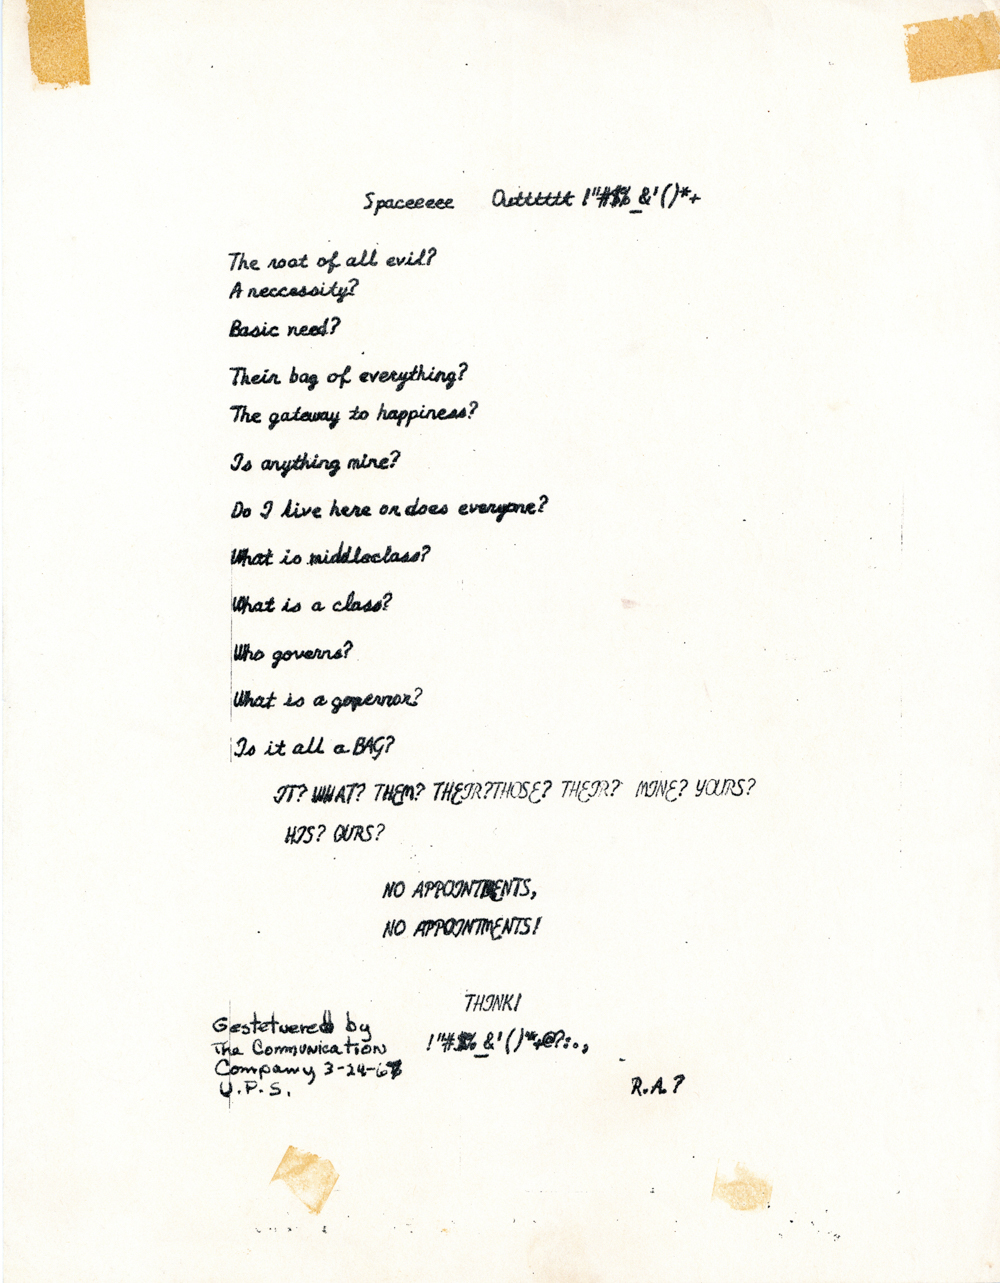 Spaceeeee Outttttt !"#$%_&'()*+
The root of all evil?
A neccessity?
Basic need?
Their bag of everything?
The gateway to happiness?
Is anything mine?
Do I live here or does everyone?
What is middleclass?
What is a class?
Who governs?
What is a governor?
Is it all a BAG?
IT? WHAT? THEM? THEIR?THOSE? THEIR? MINE? YOURS?
HIS? OURS?
NO APPOINTMENTS,
NO APPOINTMENTS!
THINK!
!"#$%_&'()*+@?:.,
Gestetnered by
The Communication
Company 3-24-67
U.P.S.
R.A.?